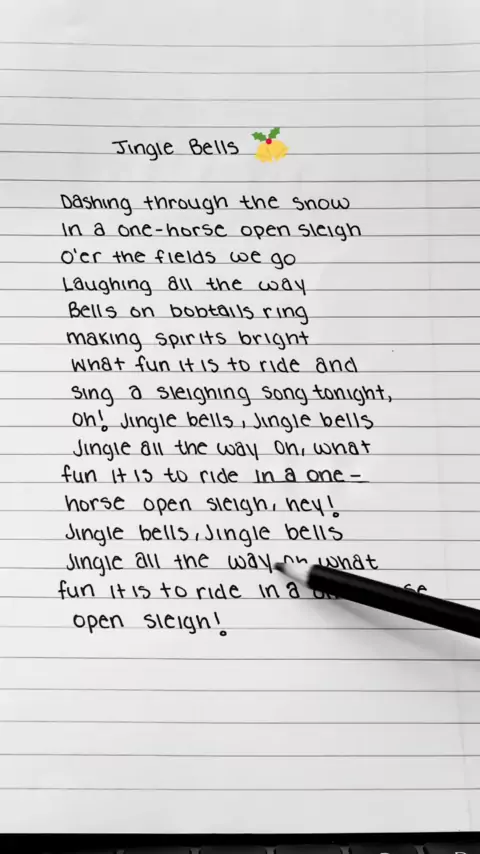 Jingle Bells
Dashing through the snow
In a one-horse open sleigh
O'er the fields we go
Laughing all the way
Bells on bobtails ring
making spirits bright
what fun it is to ride and
sing a sleighing song tonight,
Oh! Jingle bells, Jingle bells
Jingle all the way Oh, what
fun it is to ride in a one-
horse open sleigh, hey!
Jingle bells, Jingle bells
Jingle all the way oh what
fun it is to ride in a
open sleigh!